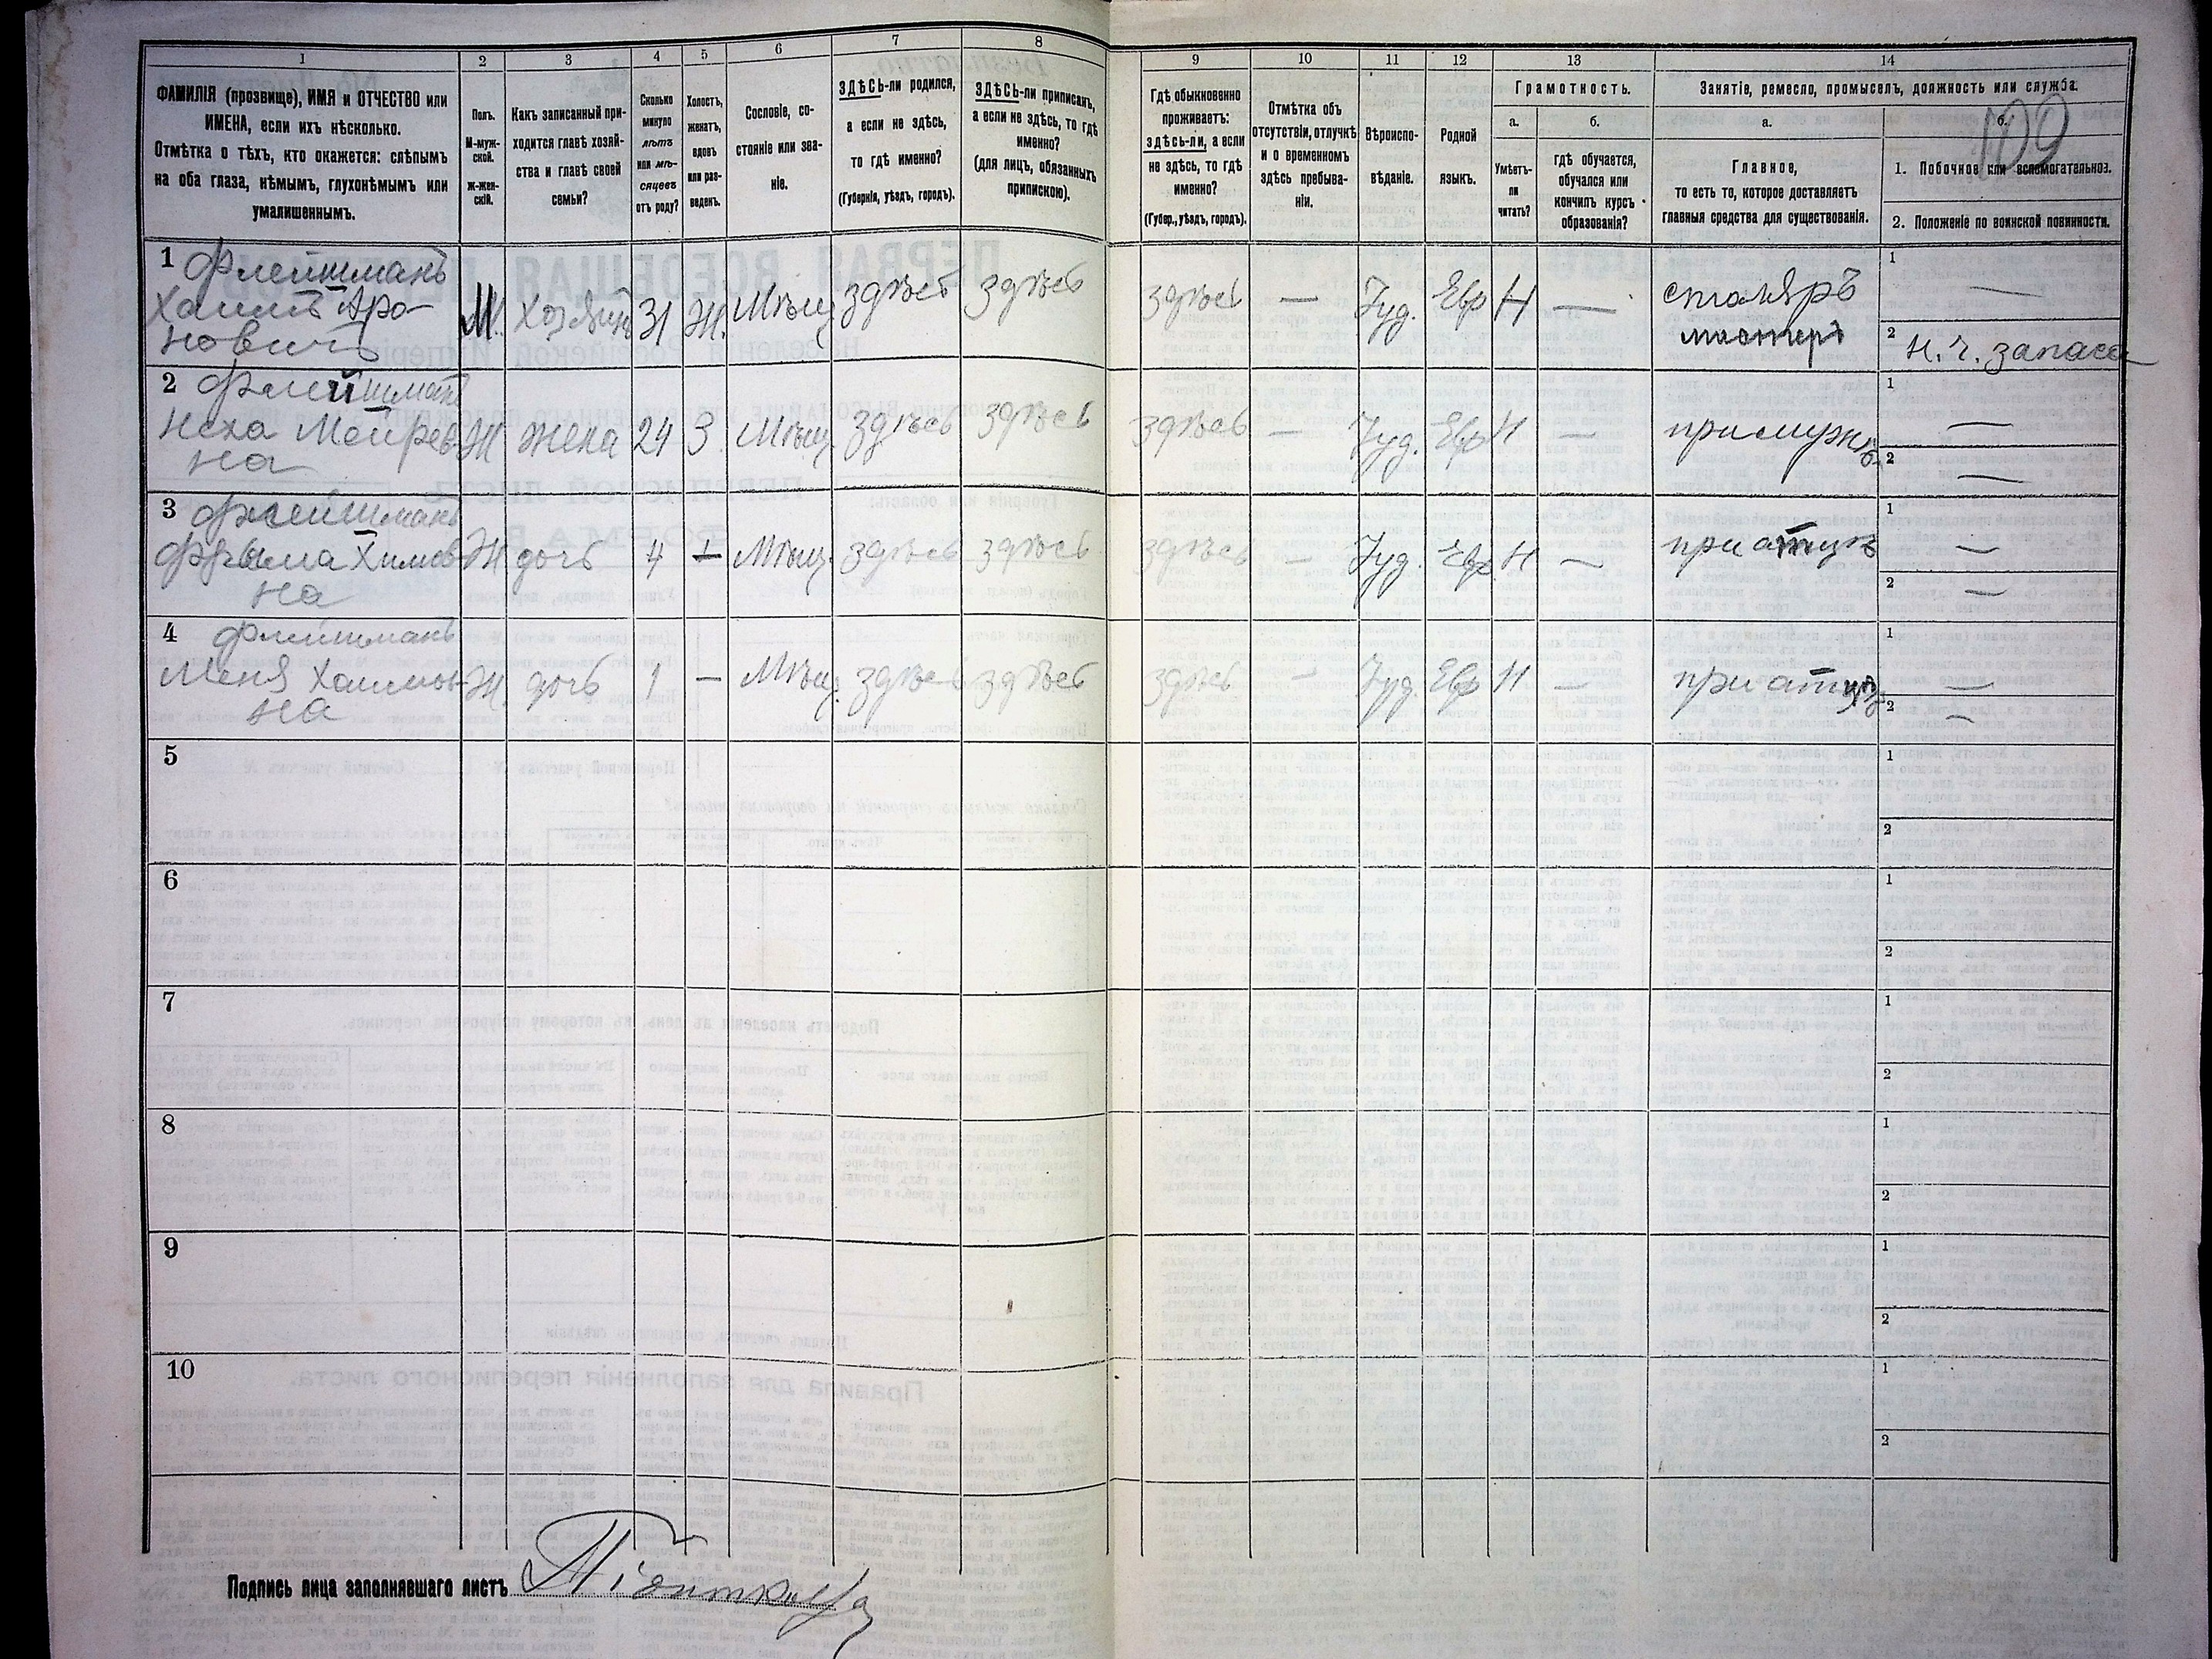 1 2 3 4 5 6 7 8 9 10 11 12 13 14
ФАМИЛІЯ (прозвище), ИМЯ и ОТЧЕСТВО или
ИМЕНА, если ихъ нѣсколько.
Отмѣтка о тѣхъ, кто окажется: слѣпымъ
на оба глаза, нѣмымъ, глухонѣмымъ или
умалишеннымъ.
Полъ.
М-муж-
ской.
ж-жен-
скій.
Какъ записанный при-
ходится главѣ хозяй-
ства и главѣ своей
семьи?
Сколько
минуло
лѣтъ
или мѣ-
сяцевъ
отъ роду?
Холостъ,
женатъ,
вдовъ
или раз-
веденъ.
Сословіе, со-
стояніе или зва-
ніе.
ЗДѢСЬ-ли родился,
а если не здѣсь,
то гдѣ именно?
(Губернія, уѣздъ, городъ).
ЗДѢСЬ-ли приписанъ,
а если не здѣсь, то гдѣ
именно?
(для лицъ, обязанныхъ
припискою).
Гдѣ обыкновенно
проживаетъ:
здѣсь-ли, а если
не здѣсь, то гдѣ
именно?
(Губер., уѣздъ, городъ).
Отмѣтка объ
отсутствіи, отлучкѣ
и о временномъ
здѣсь пребыва-
ніи.
Вѣроиспо-
вѣданіе.
Родной
языкъ.
Грамотность.
а.
Умѣетъ-
ли
читать?
б.
гдѣ обучается,
обучался или
кончилъ курсъ
образованія?
Занятіе, ремесло, промыселъ, должность или служба.
а.
Главное,
то есть то, которое доставляетъ
главныя средства для существованія.
б.
109
1. Побочное или вспомогательное.
2. Положеніе по воинской повинности.
1 Флейшманъ
Хаимъ Аро-
новичъ
М. Хозяинъ 31 Ж. Мѣщ. здѣсь здѣсь здѣсь — Іуд. Евр Н —
столяръ
мастеръ
1 —
2 н. ч. запаса
2 Флейшманъ
Неха Меирев-
на
Ж жена 29 З Мѣщ. здѣсь здѣсь здѣсь — Іуд. Евр Н — при мужѣ
1 —
2 —
3 Флейшманъ
Хаимов-
на
Ж дочь 4 — Мѣщ. здѣсь здѣсь здѣсь — Іуд. Евр. Н — при атцѣ
1 —
2 —
4 Флейшманъ
Меня Хаимов-
на
Ж. дочь 1 — Мѣщ. здѣсь здѣсь здѣсь — Іуд. Евр Н — при атцѣ
1 —
2 —
5 1
2
6 1
2
7 1
2
8 1
2
9 1
2
10 1
2
Подпись лица заполнявшаго листъ